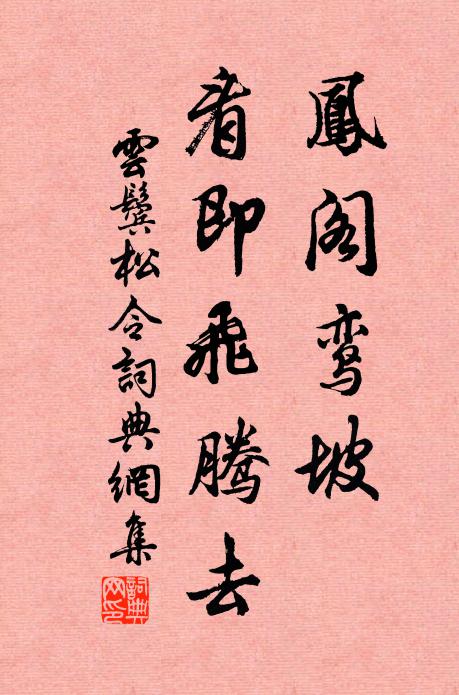 鳳阁鸾坡
看即飛騰去
雲鬓松令詞典網集
詞典
网印